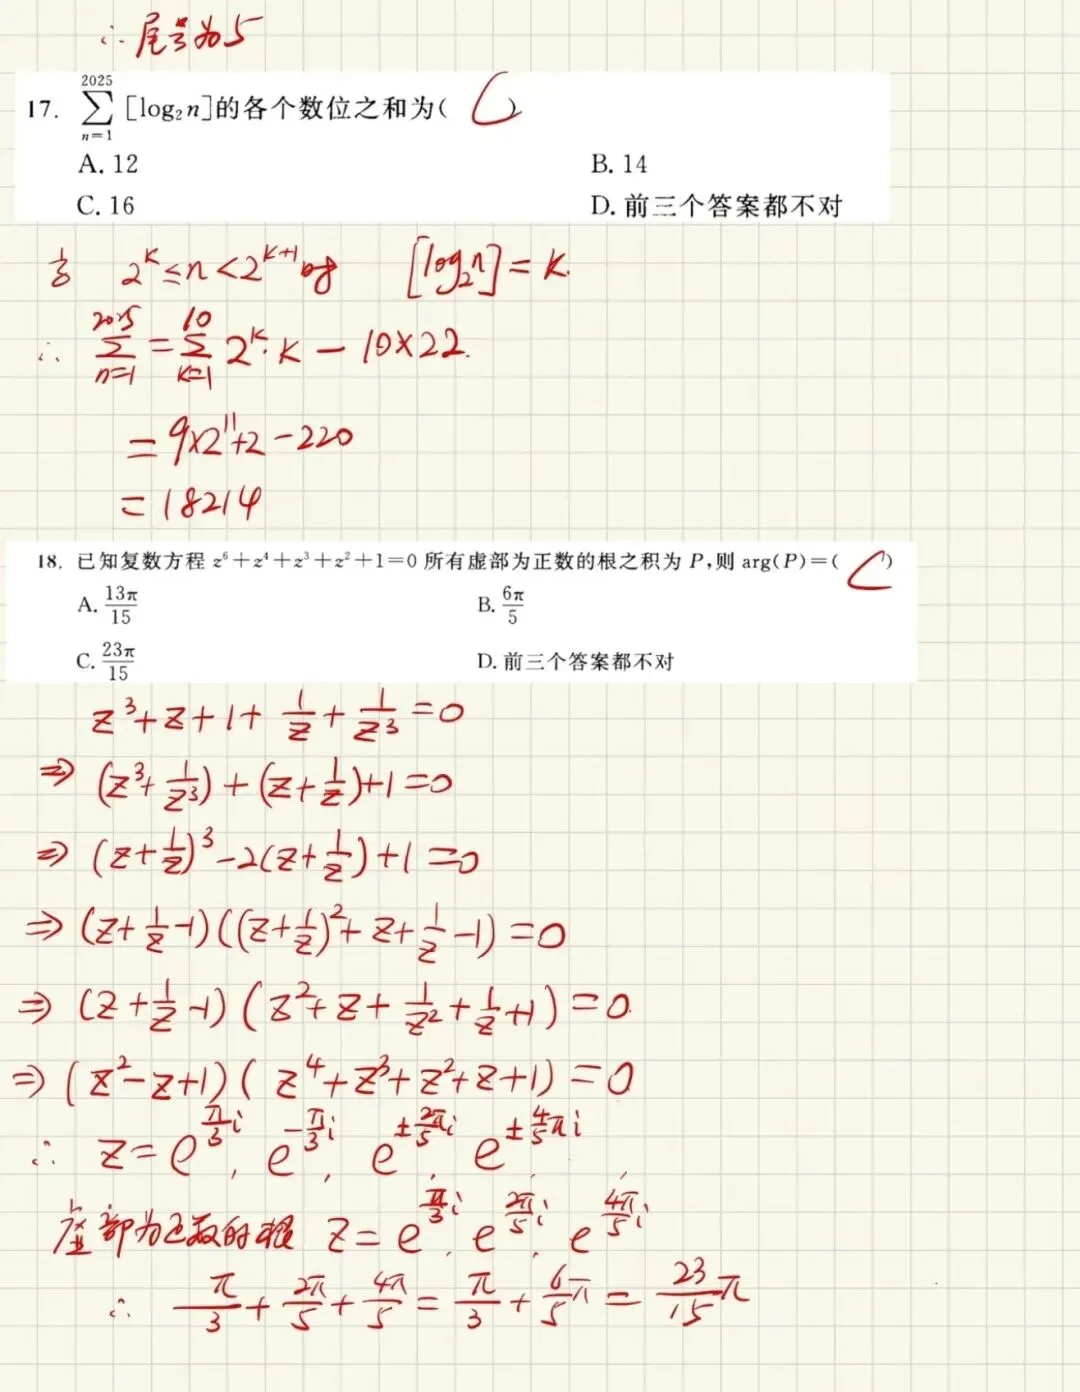 ∴ 尾号为5
17. $\sum_{n=1}^{2025}$ [log₂n]的各个数位之和为( C )
A. 12 B. 14
C. 16 D. 前三个答案都不对
当 2^k ≤ n < 2^{k+1} 时 [log₂n] = k.
∴ $\sum_{n=1}^{2025}$ = $\sum_{k=1}^{10}$ 2^k · k − 10×22.
= 9×2^{11}+2 −220
= 18214
18. 已知复数方程 z⁶+z⁴+z³+z²+1=0 所有虚部为正数的根之积为 P,则 arg(P)=( C )
A. 13π/15 B. 6π/5
C. 23π/15 D. 前三个答案都不对
z³+z+1+1/z+1/z³=0
⇒ (z³+1/z³)+(z+1/z)+1=0
⇒ (z+1/z)³−2(z+1/z)+1=0
⇒ (z+1/z−1)((z+1/z)²+z+1/z−1)=0
⇒ (z+1/z−1)(z²+z+1/z²+1/z+1)=0.
⇒ (z²−z+1)(z⁴+z³+z²+z+1)=0
∴ z=e^{π/3 i}, e^{−π/3 i}, e^{±2π/5 i}, e^{±4/5 πi}
虚部为正数的根 z=e^{π/3 i}, e^{2π/5 i}, e^{4π/5 i}
∴ π/3+2π/5+4π/5=π/3+6/5π=23/15π